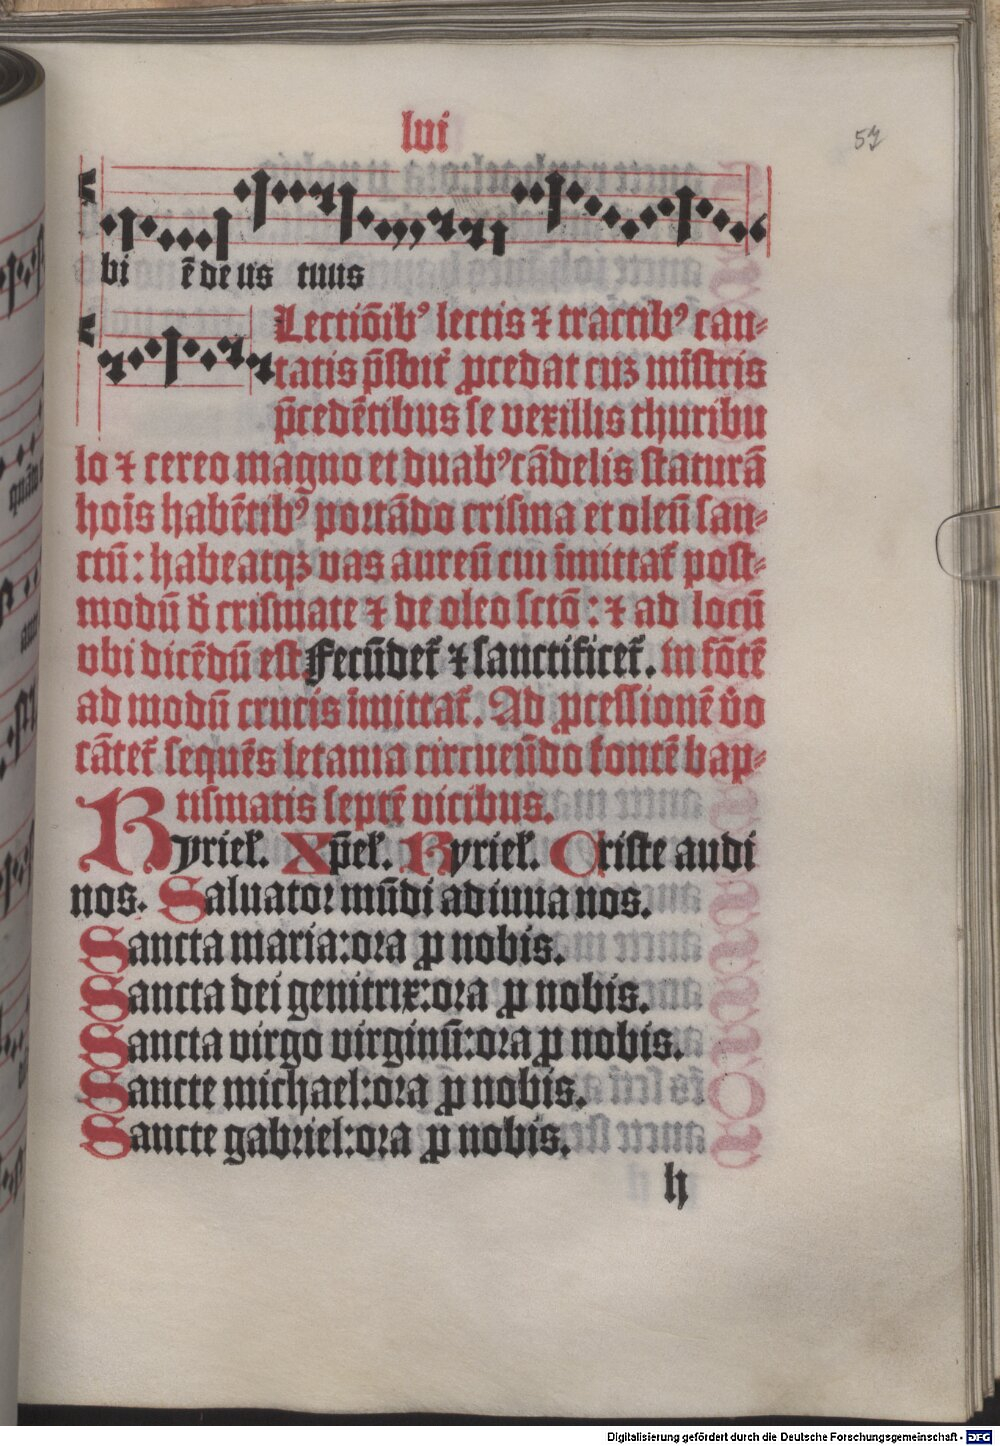 lvi
57
bi ē de us tuus
Lectiōib⁹ lectis ⁊ tractib⁹ can⸗
tatis p̄sbit̄ ꝓcedat cuꝫ mīstris
p̄cedētibus se vexillis thuribu
lo ⁊ cereo magno et duab⁹ cādelis staturā
hoīs habētib⁹ portādo crisma et oleū san⸗
ctū: habeatqꝫ vas aureū cui īmittat̄ post⸗
modū d̄ crismate ⁊ de oleo sctō: ⁊ ad locū
vbi dicēdū est Fecūdet̄ ⁊ sanctificet̄. in fōtē
ad modū crucis īmittat̄. Ad ꝓcessionē v̄o
cātet̄ sequēs letania circuēūdo fontē bap⸗
tismatis septē vicibus.
Kyriel̄. Xp̄el̄. Kyriel̄. Criste audi
nos. Saluator mūdi adiuua nos.
Sancta maria: ora ꝓ nobis.
Sancta dei genitrix: ora ꝓ nobis.
Sancta virgo virginū: ora ꝓ nobis.
Sancte michael: ora ꝓ nobis.
Sancte gabriel: ora ꝓ nobis.
h
Digitalisierung gefördert durch die Deutsche Forschungsgemeinschaft - DFG